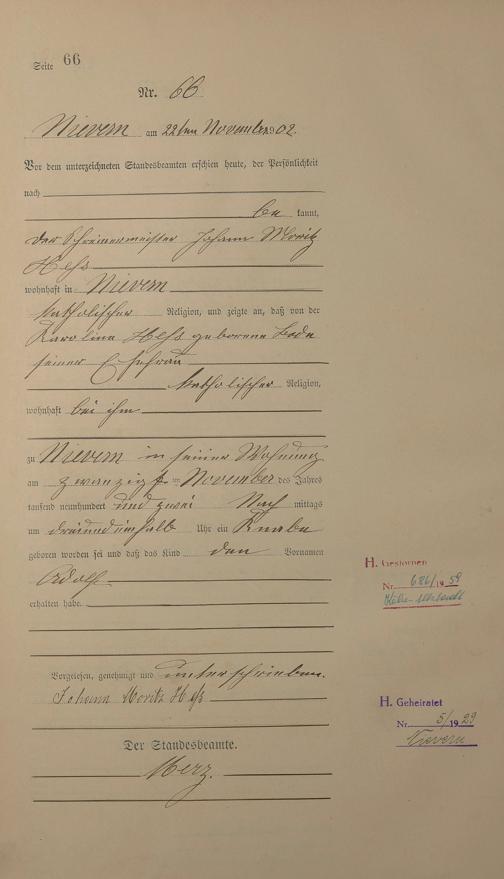 Seite 66
Nr. 66
Nievern am 22ten November 1902.
Vor dem unterzeichneten Standesbeamten erschien heute, der Persönlichkeit
nach
be kannt,
der Schreinermeister Johann Moritz
Heß
wohnhaft in Nievern
katholischer Religion, und zeigte an, daß von der
Karolina Heß geborene Bode
seiner Ehefrau
katholischer Religion,
wohnhaft bei ihm
zu Nievern in seiner Wohnung
am zwanzigsten November des Jahres
tausend neunhundert und zwei Nach mittags
um dreiundeinhalb Uhr ein Knabe
geboren worden sei und daß das Kind den Vornamen
Adolf
erhalten habe.
Vorgelesen, genehmigt und unterschrieben.
Johann Moritz Heß
Der Standesbeamte.
Merz.
H. Gestorben
Nr. 686/1959
H. Geheiratet
Nr. 5/1929
Nievern